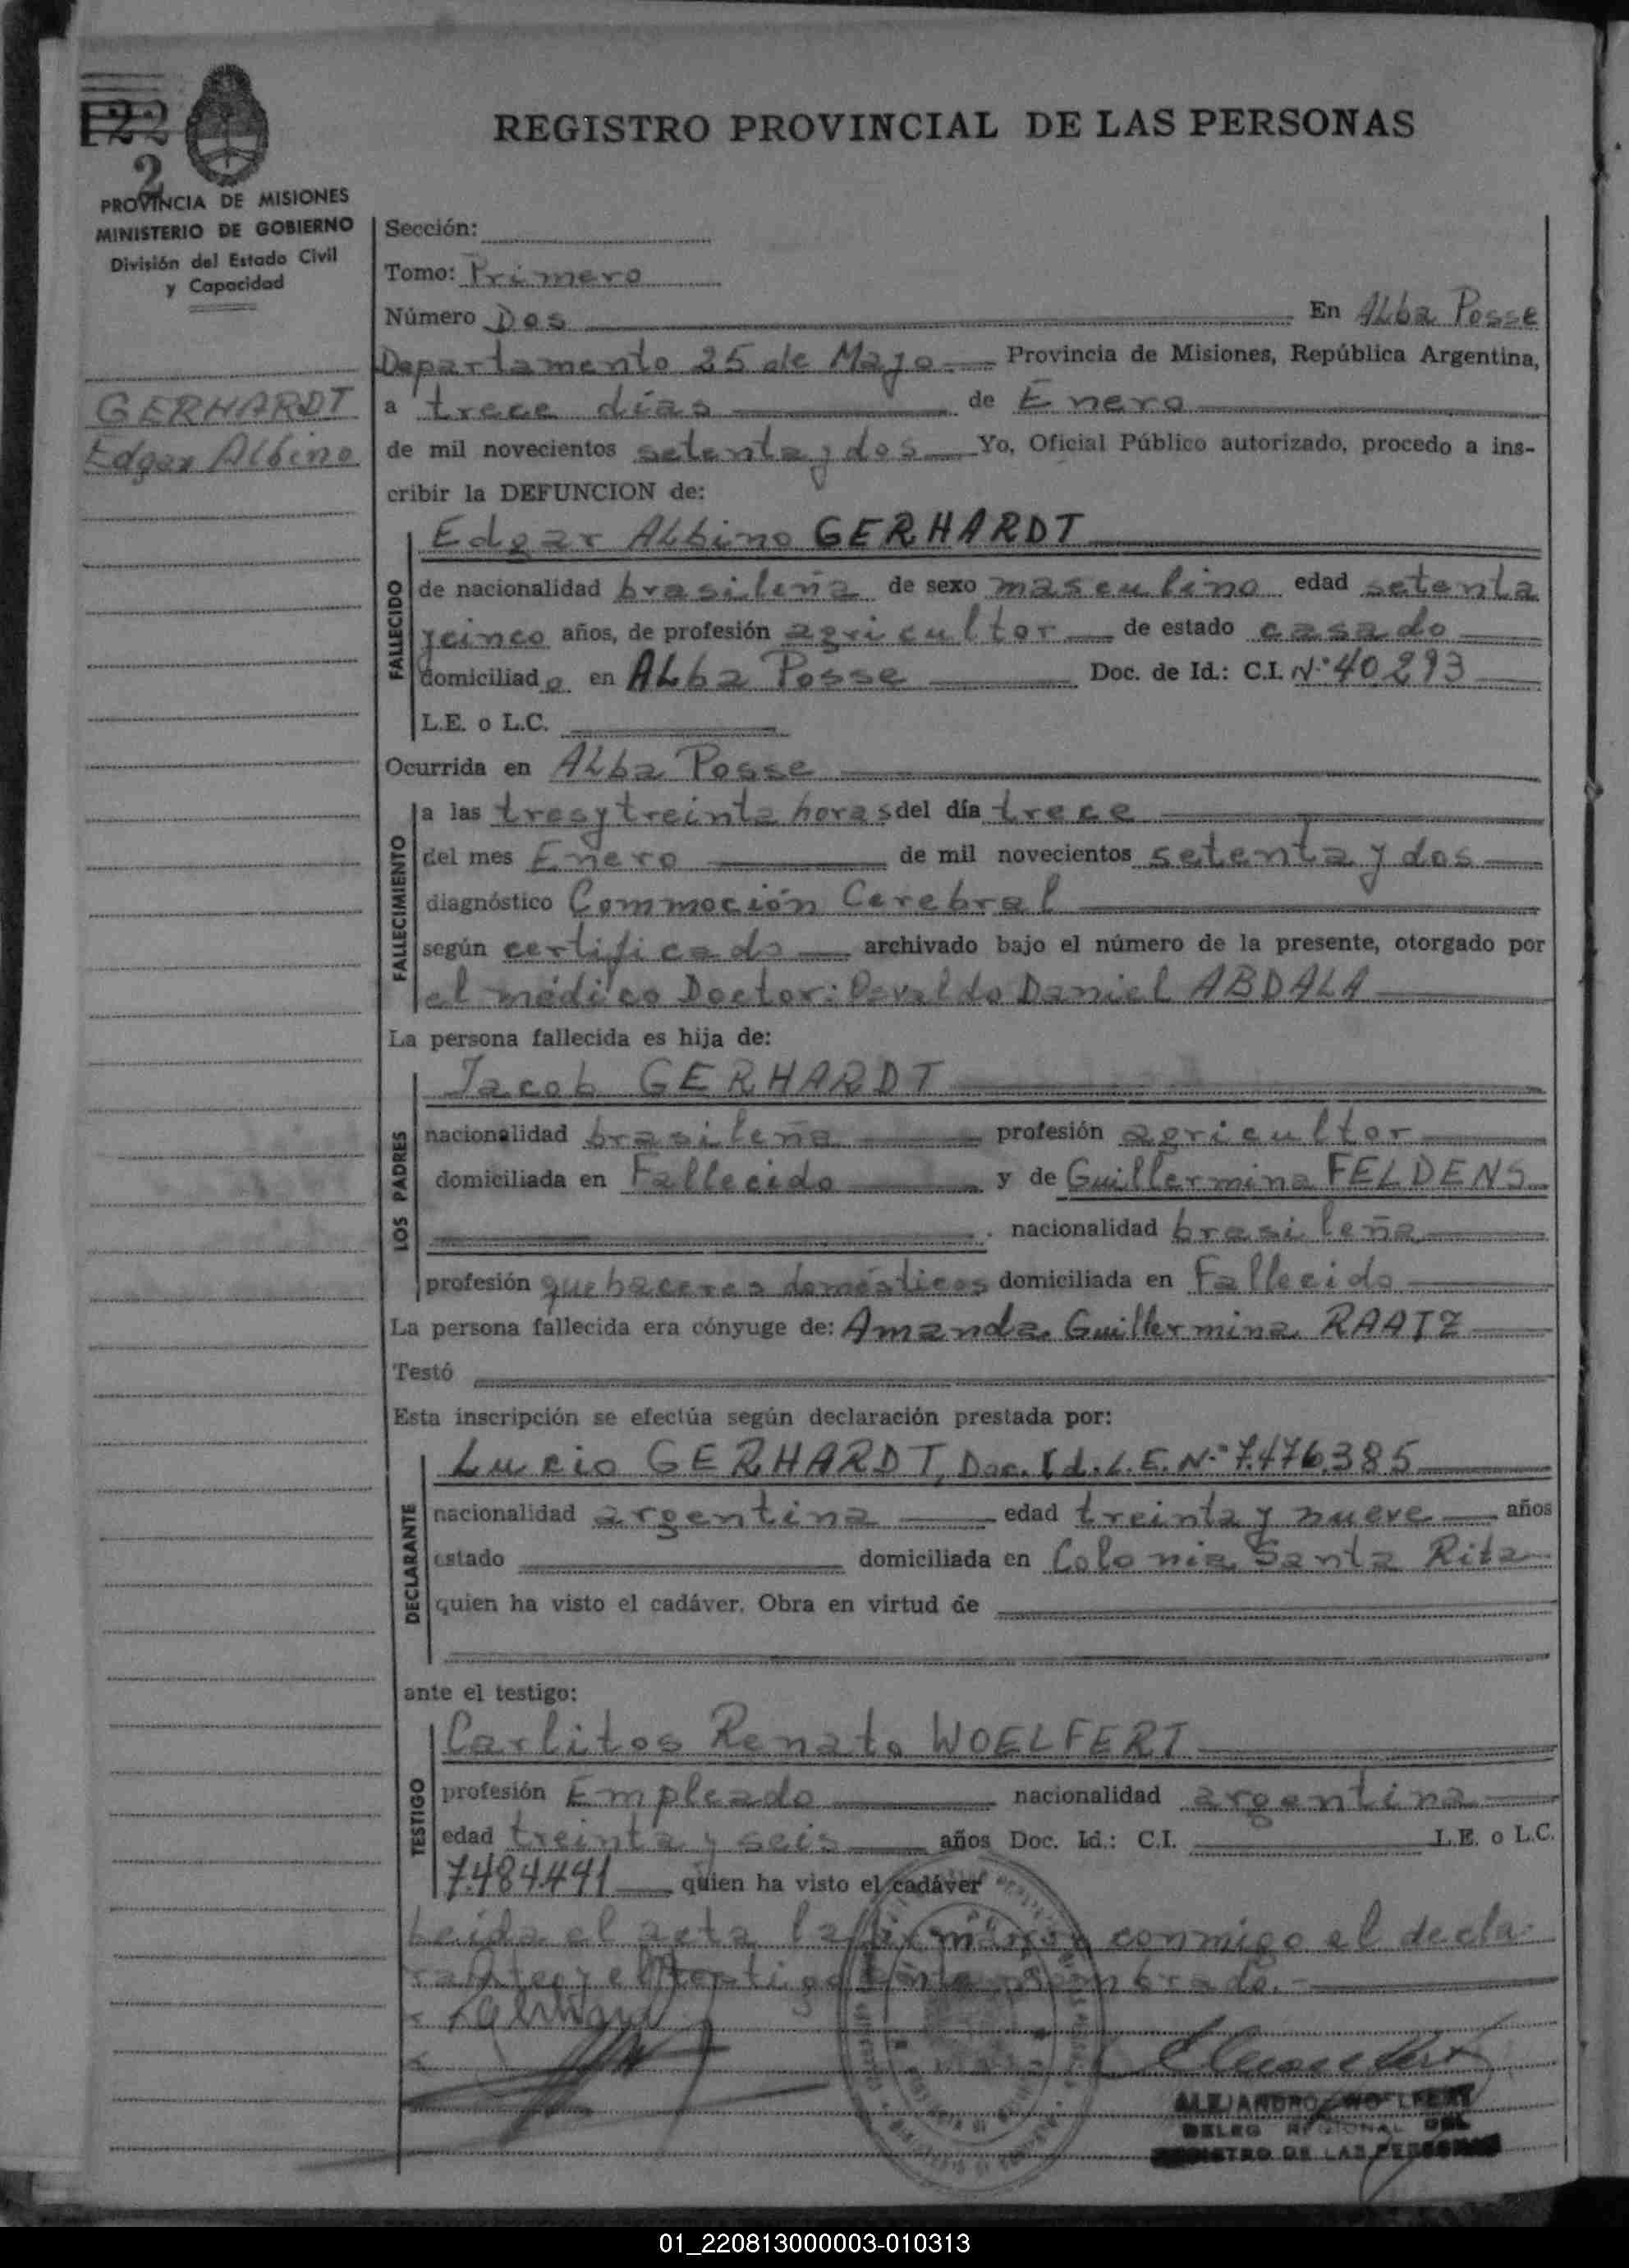 REGISTRO PROVINCIAL DE LAS PERSONAS
122
2
PROVINCIA DE MISIONES
MINISTERIO DE GOBIERNO
División del Estado Civil
y Capacidad
GERHARDT
Edgar Albino
Sección:
Tomo: Primero
Número Dos En Alba Posse
Departamento 25 de Mayo Provincia de Misiones, República Argentina,
a trece días de Enero
de mil novecientos setenta y dos Yo, Oficial Público autorizado, procedo a ins-
cribir la DEFUNCION de:
FALLECIDO
Edgar Albino GERHARDT
de nacionalidad brasileña de sexo masculino edad setenta
y cinco años, de profesión agricultor de estado casado
domiciliado en Alba Posse Doc. de Id.: C.I. Nº 40293
L.E. o L.C.
Ocurrida en Alba Posse
FALLECIMIENTO
a las tres y treinta horas del día trece
del mes Enero de mil novecientos setenta y dos
diagnóstico Commoción Cerebral
según certificado archivado bajo el número de la presente, otorgado por
el médico Doctor: Osvaldo Daniel ABDALA
La persona fallecida es hija de:
LOS PADRES
Jacob GERHARDT
nacionalidad brasileña profesión agricultor
domiciliada en Fallecido y de Guillermina FELDENS
nacionalidad brasileña
profesión quehaceres domésticos domiciliada en Fallecido
La persona fallecida era cónyuge de: Amanda Guillermina RAATZ
Testó
Esta inscripción se efectúa según declaración prestada por:
DECLARANTE
Lucio GERHARDT, Doc. Id. L.E. Nº 7.476.385
nacionalidad argentina edad treinta y nueve años
estado domiciliada en Colonia Santa Rita
quien ha visto el cadáver. Obra en virtud de
ante el testigo:
TESTIGO
Carlitos Renato WOELFERT
profesión Empleado nacionalidad argentina
edad treinta y seis años Doc. Id.: C.I. L.E. o L.C.
7.484.441 quien ha visto el cadáver
Leída el acta la firmaron conmigo el decla-
rante y el testigo nombrado.-
ALEJANDRO WOELFERT
DELEG REGIONAL DEL
REGISTRO DE LAS PERSONAS
01_220813000003-010313